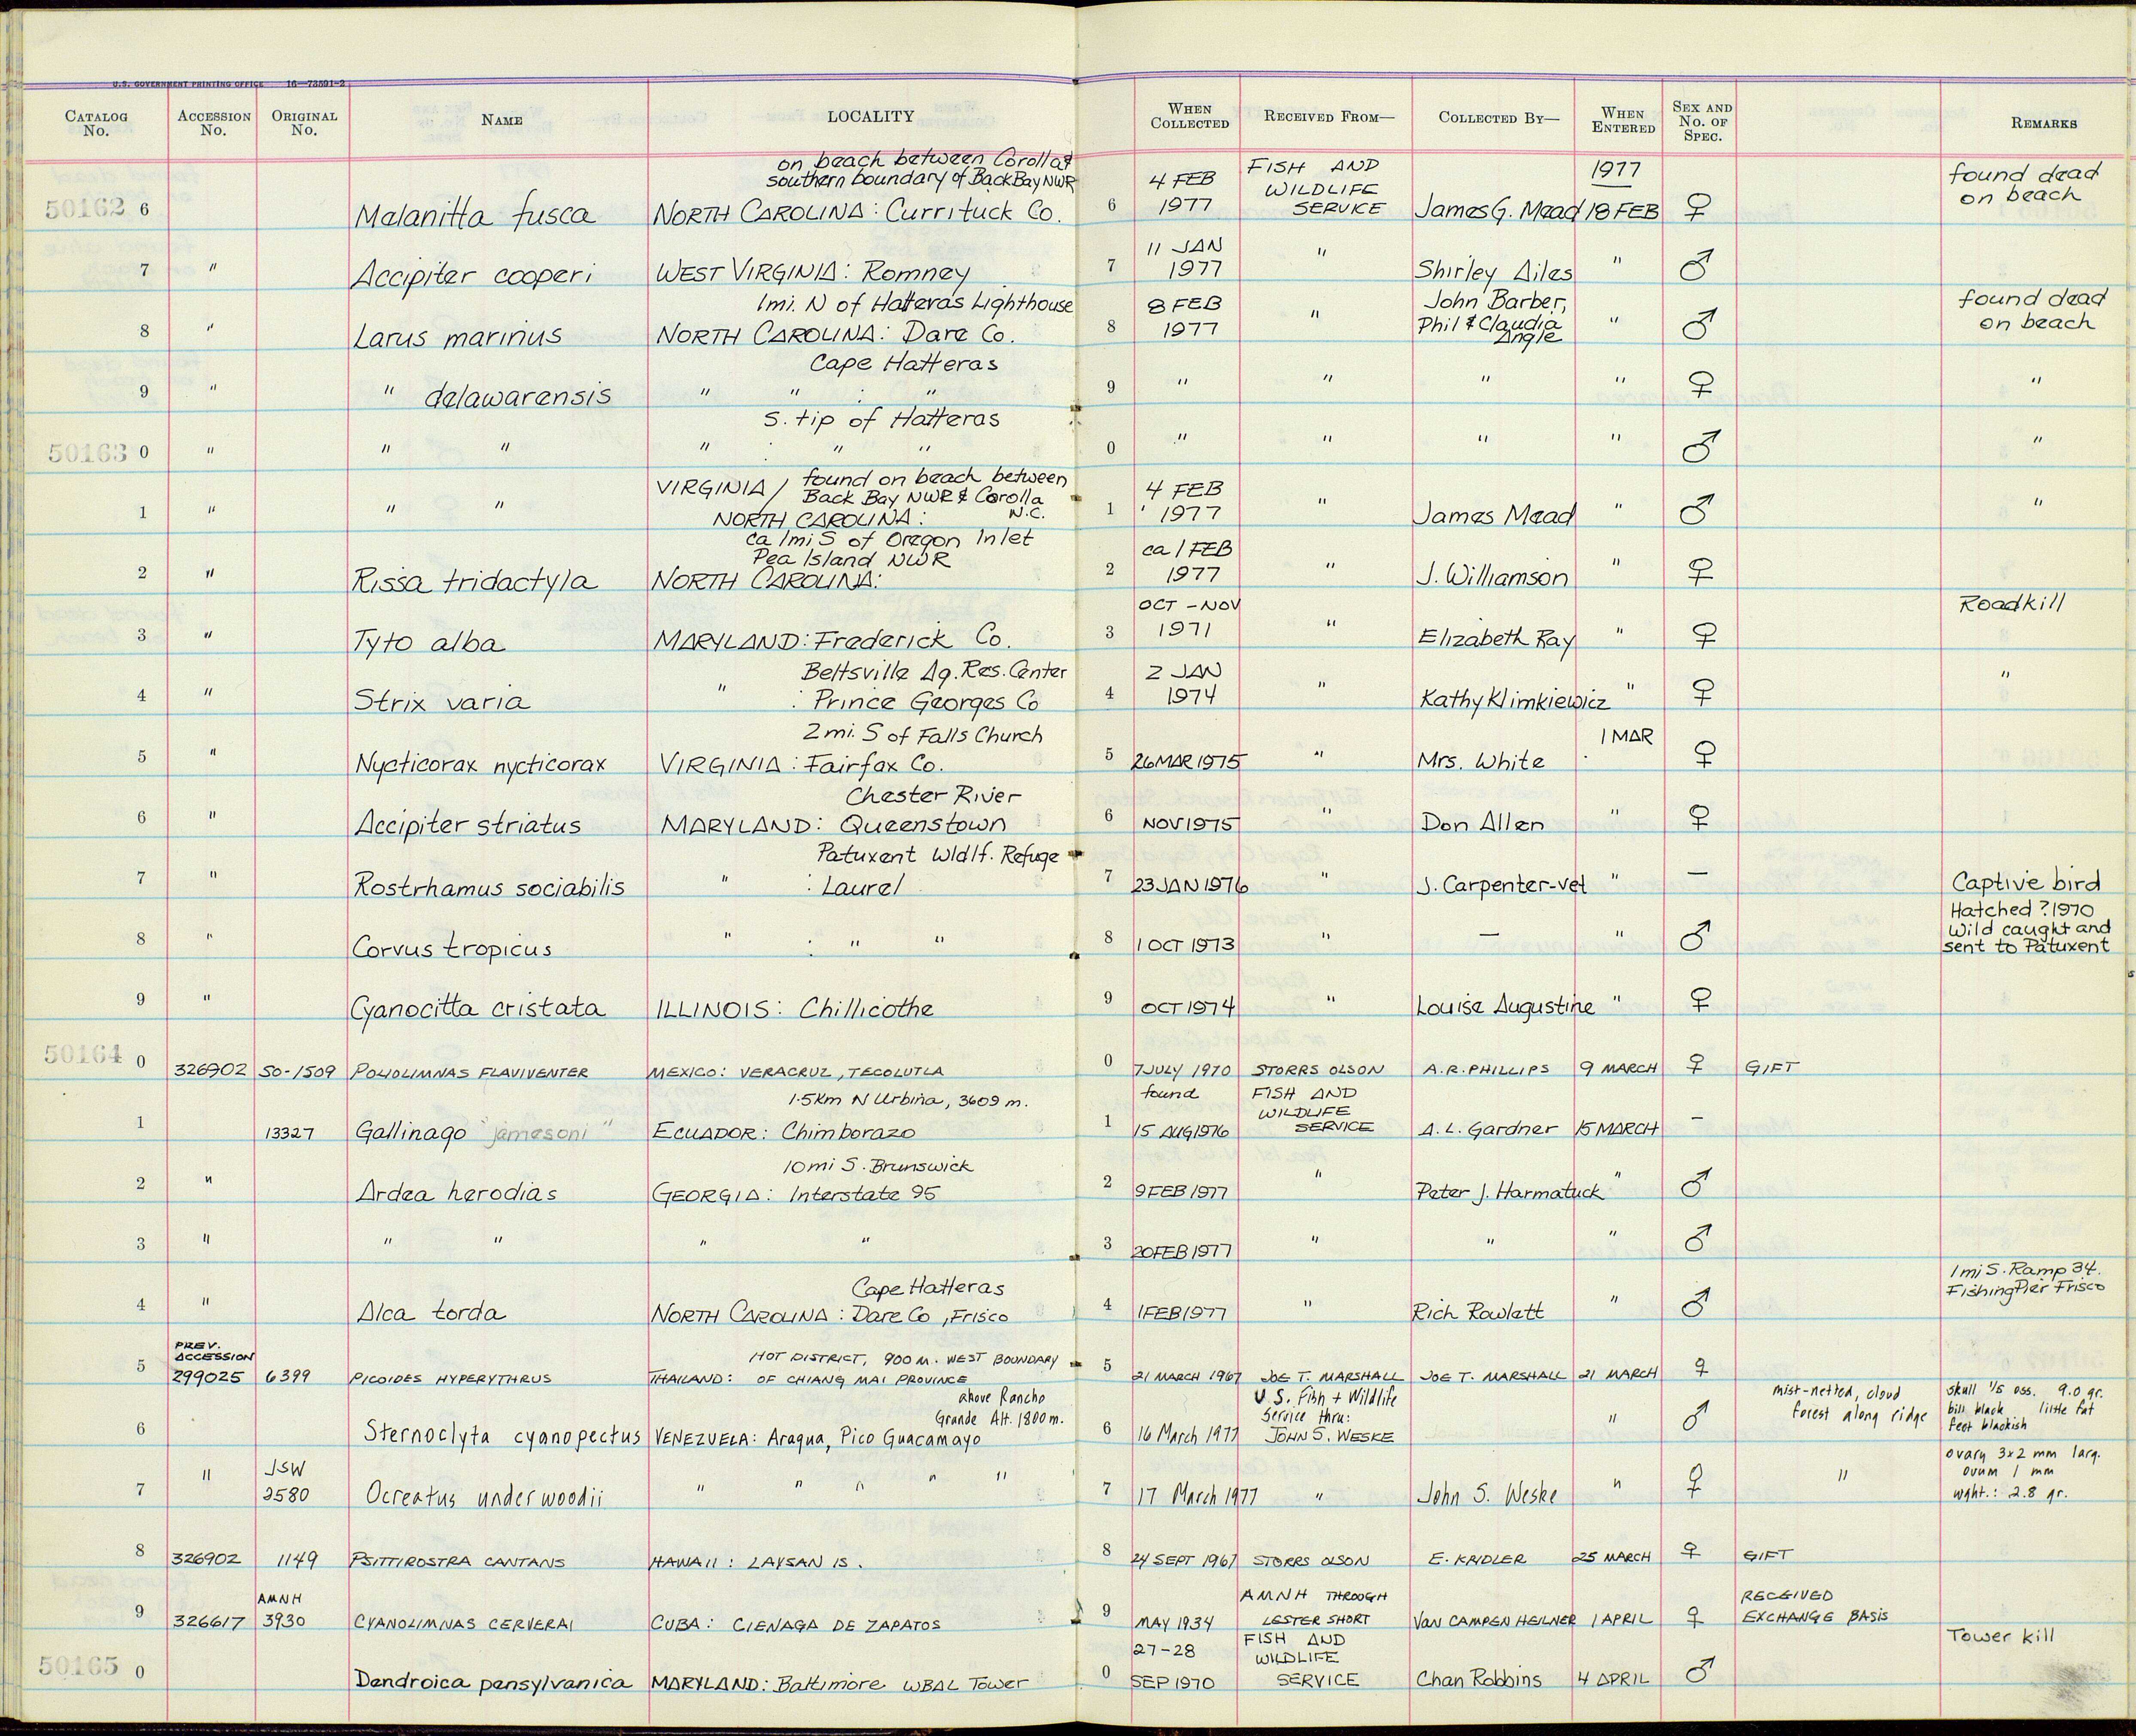 U.S. GOVERNMENT PRINTING OFFICE 16—73591-2
CATALOG No. ACCESSION No. ORIGINAL No. NAME LOCALITY WHEN COLLECTED RECEIVED FROM— COLLECTED BY— WHEN ENTERED SEX AND No. OF SPEC. REMARKS
on beach between Corolla &
southern boundary of Back Bay NWR 4 FEB FISH AND WILDLIFE 1977 found dead
50162 6 Melanitta fusca NORTH CAROLINA: Currituck Co. 6 1977 SERVICE James G. Mead 18 FEB ♀ on beach
11 JAN
7 " Accipiter cooperi WEST VIRGINIA: Romney 7 1977 " Shirley Ailes " ♂
1mi. N of Hatteras Lighthouse 8 FEB John Barber, found dead
8 " Larus marinus NORTH CAROLINA: Dare Co. 8 1977 " Phil & Claudia Angle " ♂ on beach
Cape Hatteras
9 " " delawarensis " " : " 9 " " " " ♀ "
S. tip of Hatteras
50163 0 " " " " " " 0 " " " " ♂ "
VIRGINIA / found on beach between
Back Bay NWR & Corolla 4 FEB
1 " " " NORTH CAROLINA: N.C. 1 1977 " James Mead " ♂ "
ca 1mi S of Oregon Inlet
Pea Island NWR ca 1 FEB
2 " Rissa tridactyla NORTH CAROLINA: 2 1977 " J. Williamson " ♀
OCT - NOV Roadkill
3 " Tyto alba MARYLAND: Frederick Co. 3 1971 " Elizabeth Ray " ♀
Beltsville Ag. Res. Center 2 JAN
4 " Strix varia " : Prince Georges Co 4 1974 " Kathy Klimkiewicz " ♀ "
2mi. S of Falls Church 1 MAR
5 " Nycticorax nycticorax VIRGINIA: Fairfax Co. 5 26 MAR 1975 " Mrs. White ♀
Chester River
6 " Accipiter striatus MARYLAND: Queenstown 6 NOV 1975 " Don Allen " ♀
Patuxent Wldlf. Refuge
7 " Rostrhamus sociabilis " : Laurel 7 23 JAN 1976 " J. Carpenter-vet " — Captive bird
Hatched ?1970
Wild caught and
8 " Corvus tropicus " : " " 8 1 OCT 1973 " — " ♂ sent to Patuxent
9 " Cyanocitta cristata ILLINOIS: Chillicothe 9 OCT 1974 " Louise Augustine " ♀
50164 0 326902 SO-1509 POLIOLIMNAS FLAVIVENTER MEXICO: VERACRUZ, TECOLUTLA 0 7 JULY 1970 STORRS OLSON A.R. PHILLIPS 9 MARCH ♀ GIFT
1.5Km N Urbina, 3609 m. found FISH AND WILDLIFE
1 13327 Gallinago "jamesoni" ECUADOR: Chimborazo 1 15 AUG 1976 SERVICE A. L. Gardner 15 MARCH —
10mi S. Brunswick
2 " Ardea herodias GEORGIA: Interstate 95 2 9 FEB 1977 " Peter J. Harmatuck " ♂
3 " " " " " 3 20 FEB 1977 " " " ♂
Cape Hatteras 1mi S. Ramp 34.
Fishing Pier Frisco
4 " Alca torda NORTH CAROLINA: Dare Co, Frisco 4 1 FEB 1977 " Rich Rowlett " ♂
PREV. ACCESSION HOT DISTRICT, 900 M. WEST BOUNDARY
5 299025 6399 PICOIDES HYPERYTHRUS THAILAND: OF CHIANG MAI PROVINCE 5 21 MARCH 1967 JOE T. MARSHALL JOE T. MARSHALL 21 MARCH ♀
above Rancho U.S. Fish + Wildlife mist-netted, cloud skull 1/5 oss. 9.0 gr.
Grande Alt. 1800 m. Service thru: forest along ridge bill black little fat
6 Sternoclyta cyanopectus VENEZUELA: Aragua, Pico Guacamayo 6 16 March 1977 JOHN S. WESKE " ♂ feet blackish
JSW ovary 3x2 mm larg.
ovum 1 mm
7 " 2580 Ocreatus underwoodii " " " " 7 17 March 1977 " John S. Weske " ♀ " wght.: 2.8 gr.
8 326902 1149 PSITTIROSTRA CANTANS HAWAII: LAYSAN IS. 8 24 SEPT 1967 STORRS OLSON E. KRIDLER 25 MARCH ♀ GIFT
AMNH AMNH THROUGH RECEIVED
9 326617 3930 CYANOLIMNAS CERVERAI CUBA: CIENAGA DE ZAPATOS 9 MAY 1934 LESTER SHORT Van CAMPEN HEILNER 1 APRIL ♀ EXCHANGE BASIS
27-28 FISH AND WILDLIFE Tower kill
50165 0 Dendroica pensylvanica MARYLAND: Baltimore WBAL Tower 0 SEP 1970 SERVICE Chan Robbins 4 APRIL ♂